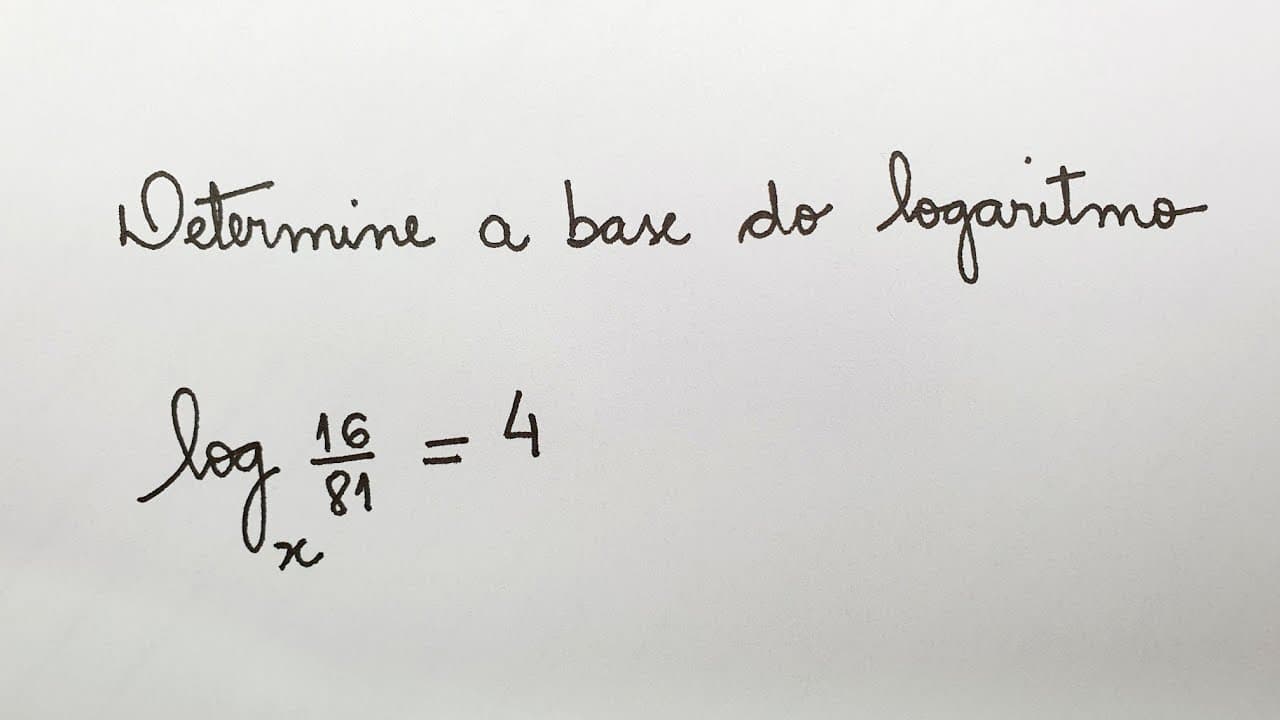 Determine a base do logaritmo
logₓ 16/81 = 4